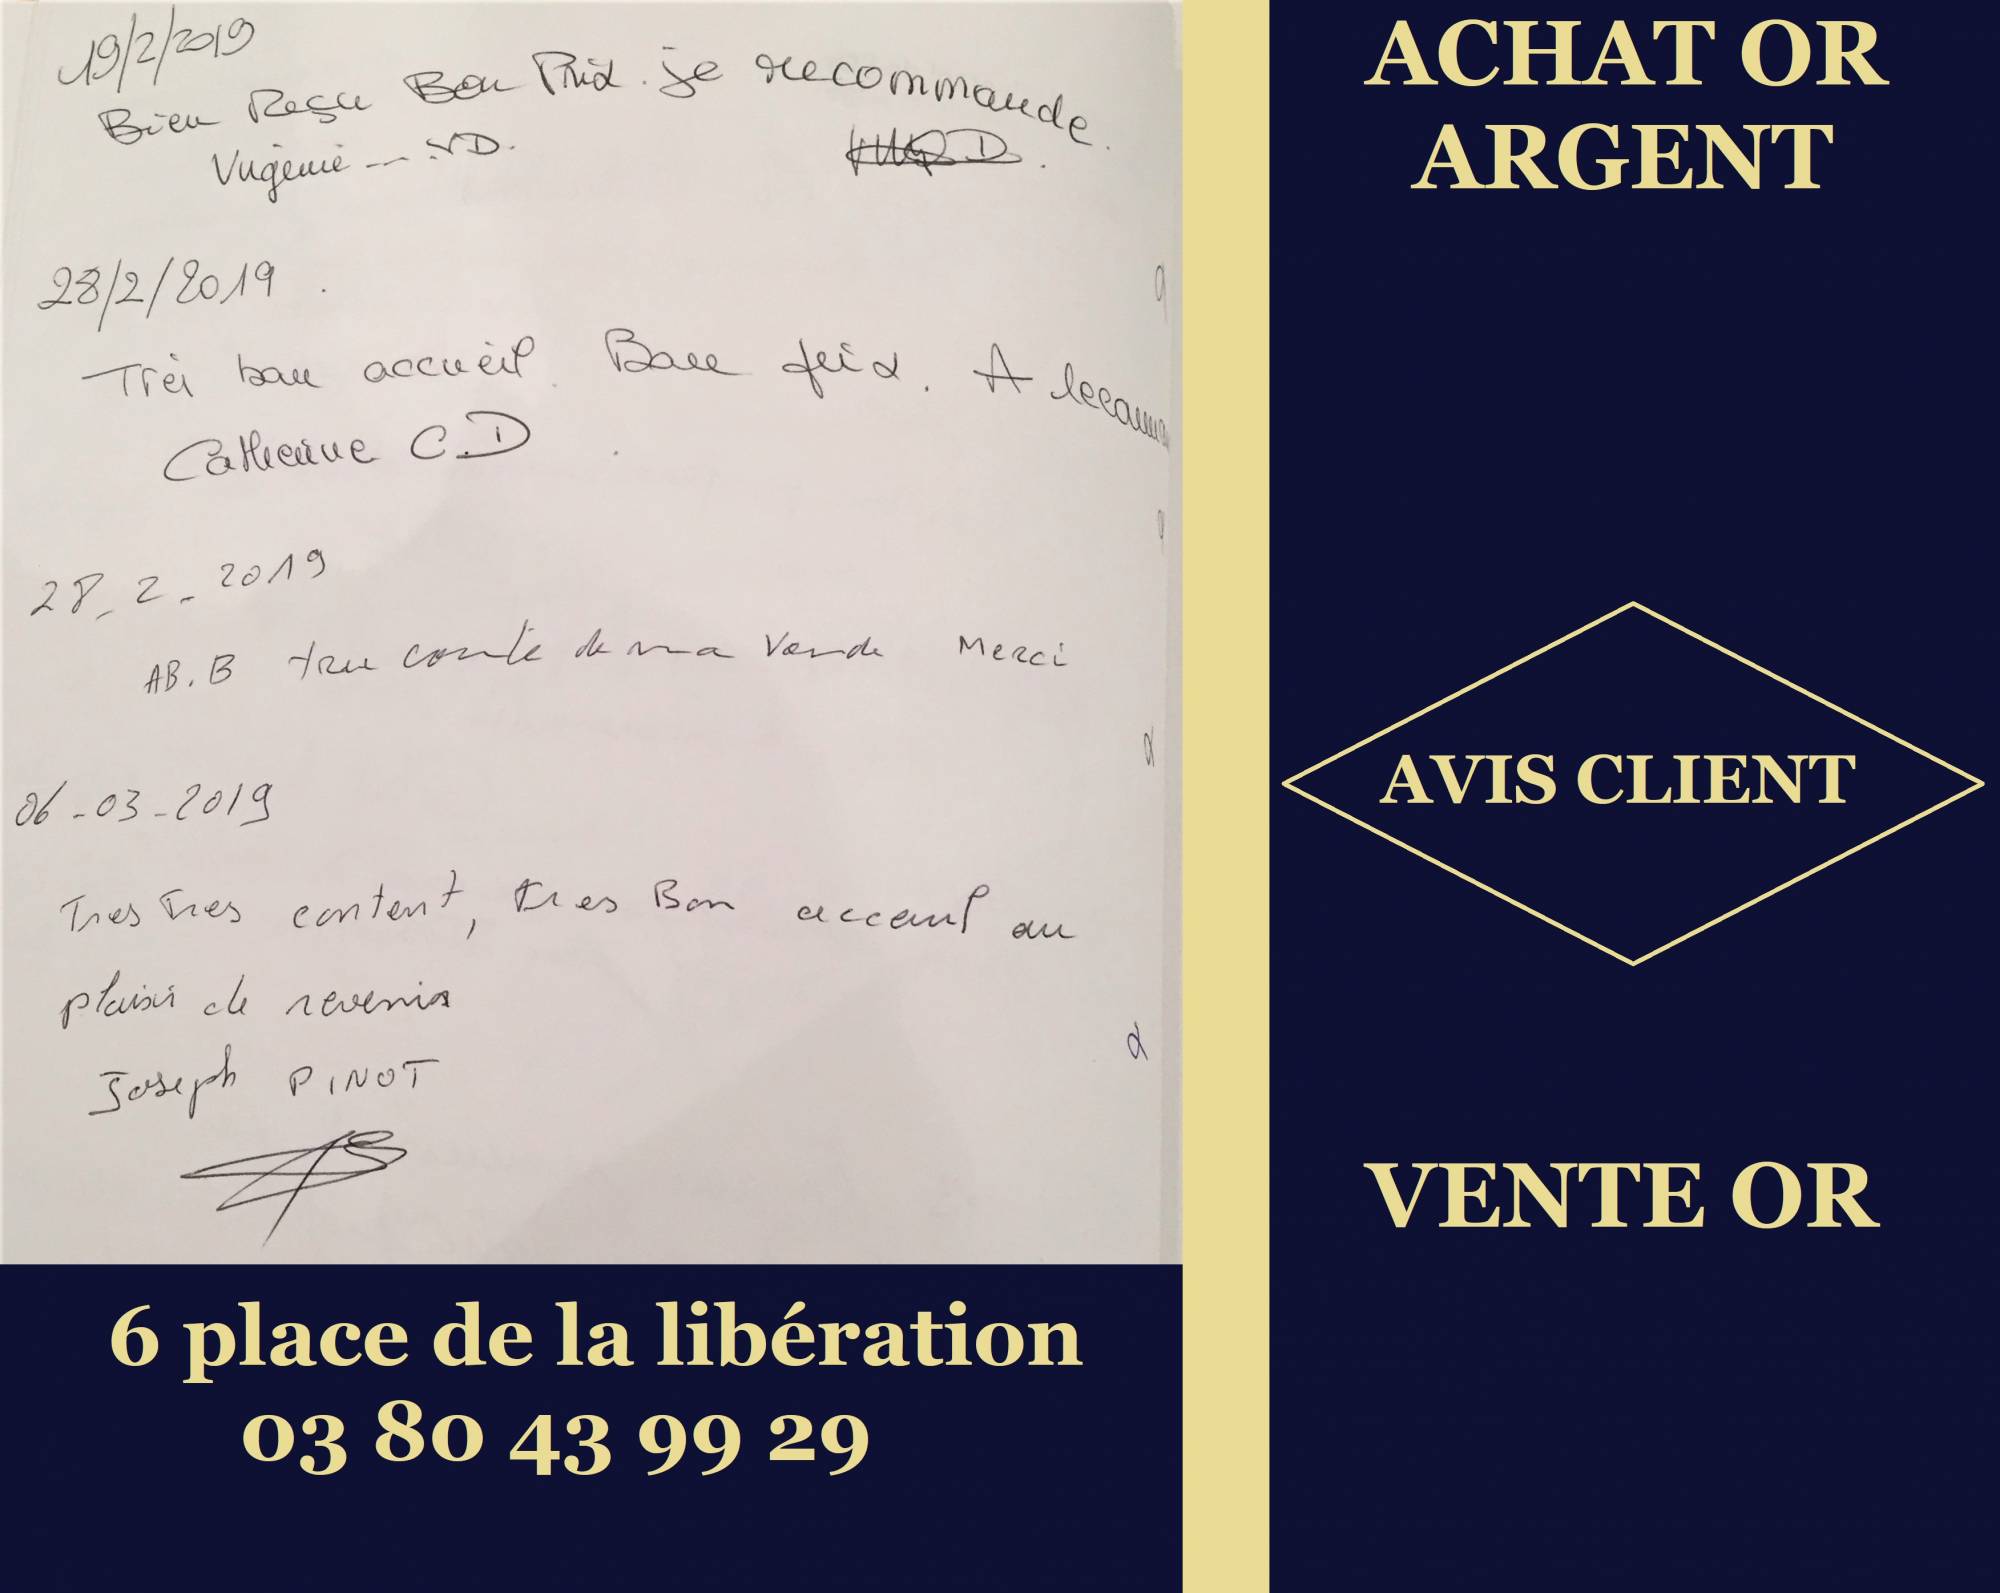 19/2/2019
Bien Reçu Bon Prix. je recommande.
D.
28/2/2019
Très bon accueil. Bon prix. A
Catherine C.D
28-2-2019
AB.B de ma Vende Merci
06-03-2019
Tres Tres content, tres Bon au
plaisir de revenir
Joseph PINOT
6 place de la libération
03 80 43 99 29
ACHAT OR
ARGENT
AVIS CLIENT
VENTE OR